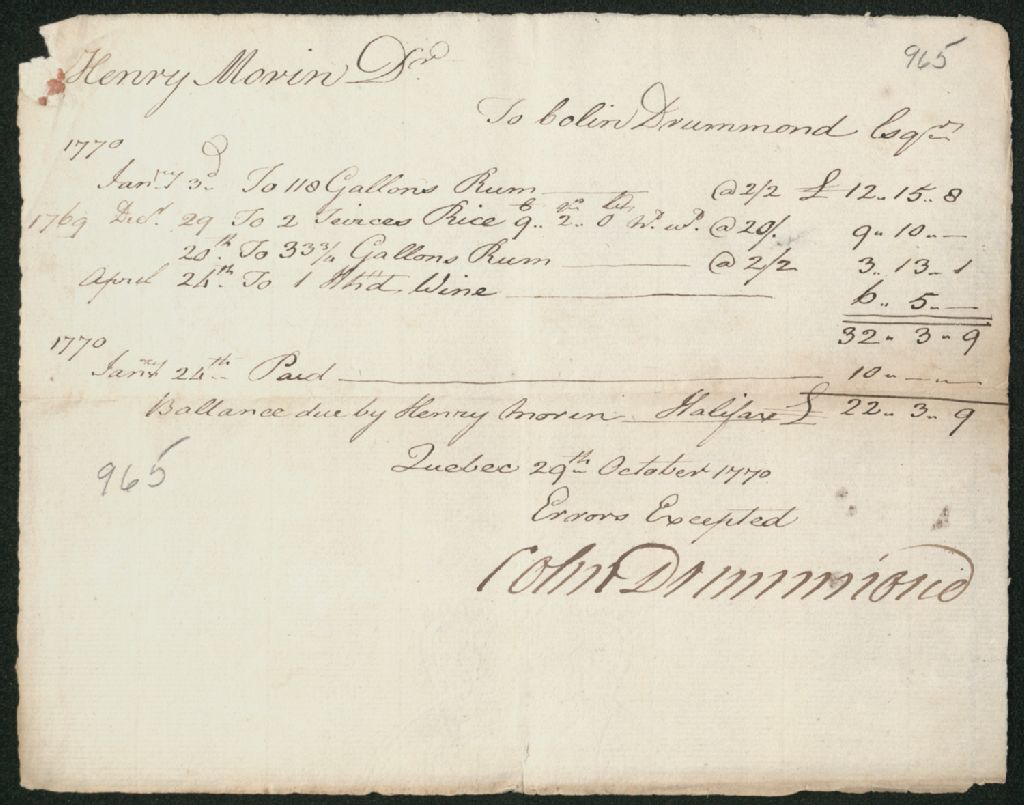 965
Henry Morin Dr
To Colin Drummond Esqr
1770
Janry 3d To 118 Gallons Rum @ 2/2 £ 12.. 15.. 8
1769 Decr 29 To 2 Teirces Rice 9.. 2.. 0 @ 20/. 9.. 10.. —
20th To 33 3/4 Gallons Rum @ 2/2 3.. 13.. 1
April 24th To 1 Hhd Wine 6.. 5.. —
32.. 3.. 9
1770
Janry 24th Paid 10.. —.. —
Ballance due by Henry Morin Halifax £ 22.. 3.. 9
965
Quebec 29th October 1770
Errors Excepted
Colin Drummond